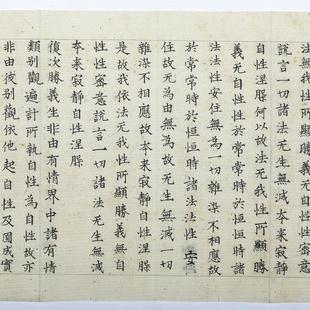 法無我性所顯勝義无自性性密意
說言一切諸法无生無滅夲來寂靜
自性涅槃何以故法无我性所顯勝
義无自性性於常常時於恒恒時諸
法法性安住無為一切雜染不相應故
於常常時於恒恒時諸法法性安
住故无為由無為故无生無滅一切
雜染不相應故夲来寂靜自性涅槃
是故我依法无我性所顯勝義無自
性性密意說言一切諸法无生無滅
夲来寂靜自性涅槃
復次勝義生非由有情界中諸有情
類別觀遍計所執自性為自性故亦
非由彼別觀依他起自性及圓成實